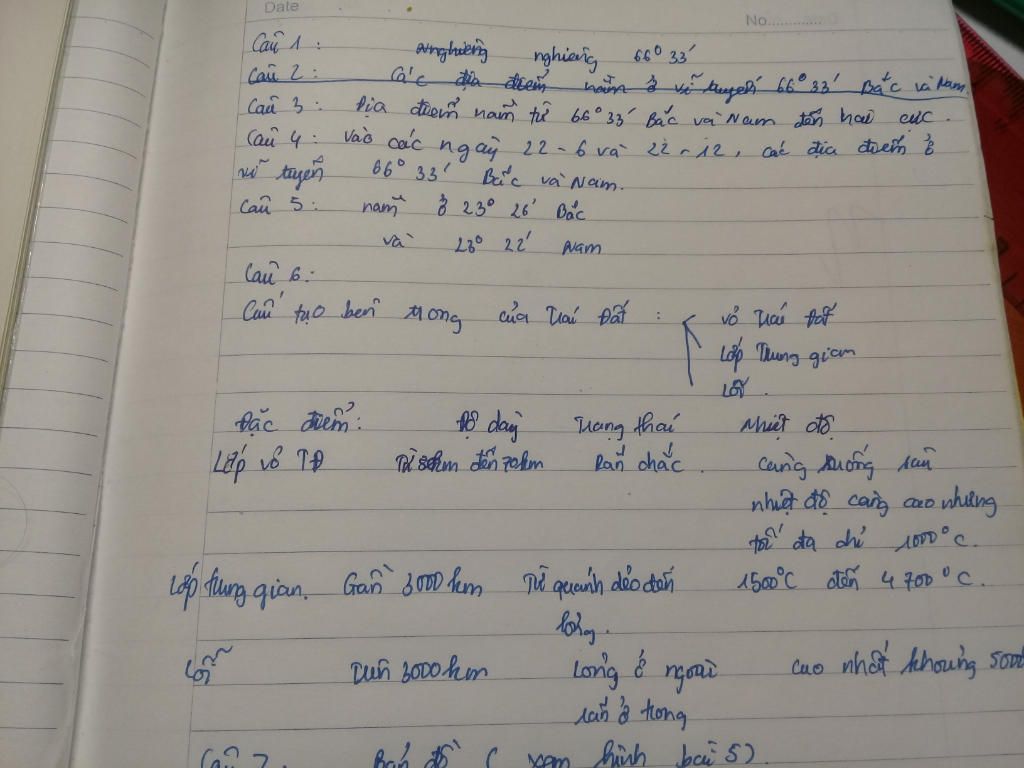 Date
No.............
Câu 1 : nghiêng nghiêng 66° 33'
Câu 2 : Các địa điểm nằm ở vĩ tuyến 66° 33' Bắc và Nam.
Câu 3 : Địa điểm nằm từ 66° 33' Bắc và Nam đến hai cực .
Câu 4 : vào các ngày 22 - 6 và 22 - 12 , các địa điểm ở
vĩ tuyến 66° 33' Bắc và Nam.
Câu 5 : nằm ở 23° 26' Bắc
và 23° 22' Nam
Câu 6 :
Cấu tạo bên trong của Trái Đất : vỏ Trái Đất
Lớp Trung gian
Lõi .
Đặc điểm : Độ dày Trạng thái Nhiệt độ
Lớp vỏ TĐ Từ 5km đến 70km Rắn chắc . Càng xuống sâu
nhiệt độ càng cao nhưng
tối đa chỉ 1000°C.
Lớp trung gian. Gần 3000 km Từ quánh dẻo đến 1500°C đến 4 700°C.
lỏng .
Lõi Trên 3000km Lỏng ở ngoài cao nhất khoảng 5000
rắn ở trong
Câu 7 : Bản đồ ( xem hình bài 5)